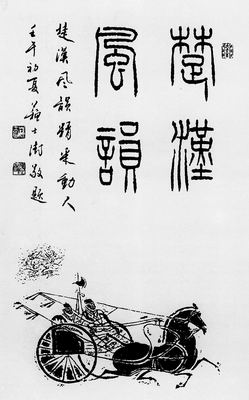 楚漢
風韻
楚漢風韻精采動人
壬午初夏薛士澍敬題